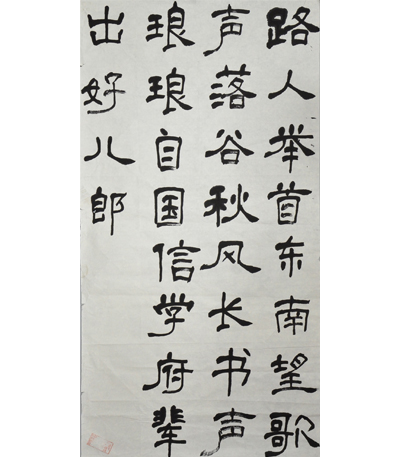 路人举首东南望歌
声落谷秋风长书声
琅琅自国信学府辈
出好儿郎